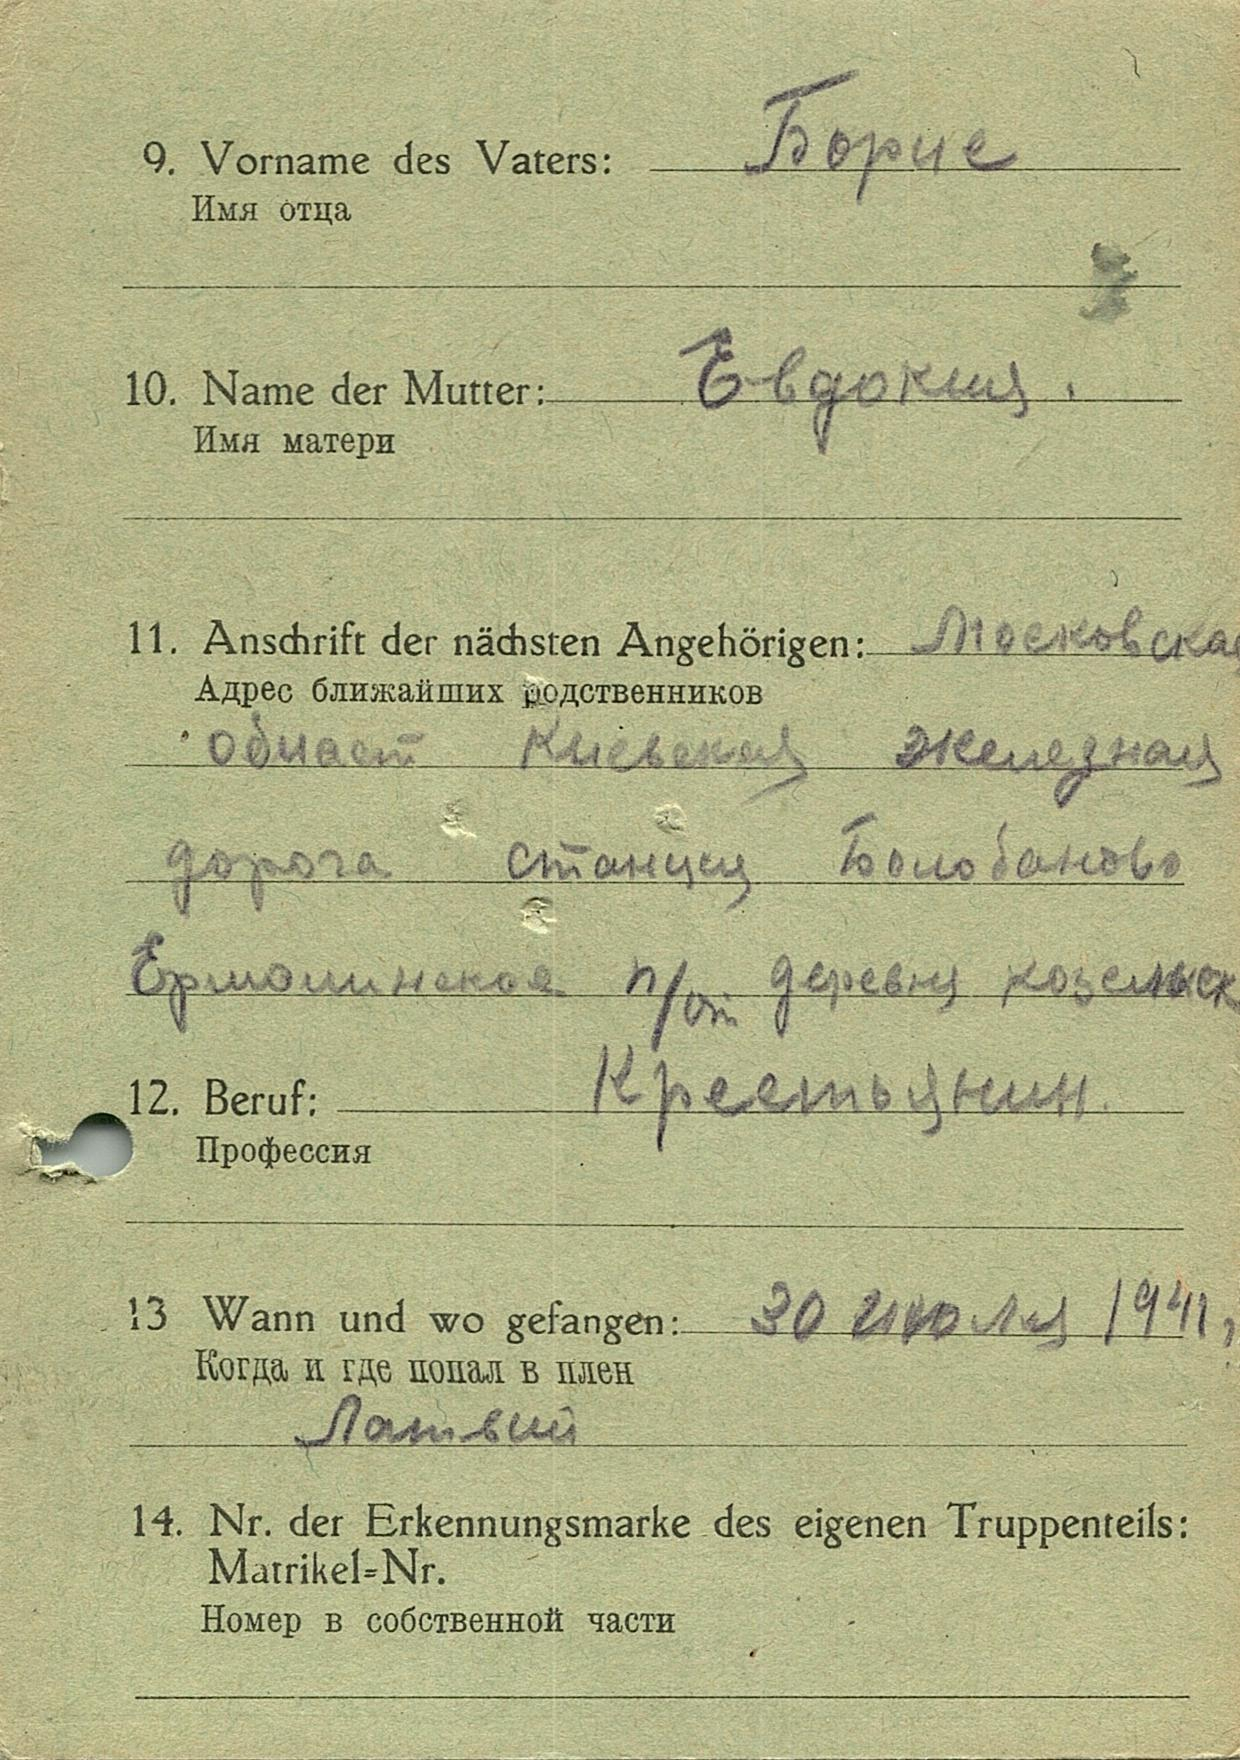 9. Vorname des Vaters: Борис
Имя отца
10. Name der Mutter: Евдокия.
Имя матери
11. Anschrift der nächsten Angehörigen: Московская
Адрес ближайших родственников
област Киевская железная
дорога станция Болобаново
Ермолинская п/от деревня козельск
12. Beruf: Крестьянин.
Профессия
13 Wann und wo gefangen: 30 июля 1941,
Когда и где попал в плен
Латвий
14. Nr. der Erkennungsmarke des eigenen Truppenteils:
Matrikel=Nr.
Номер в собственной части